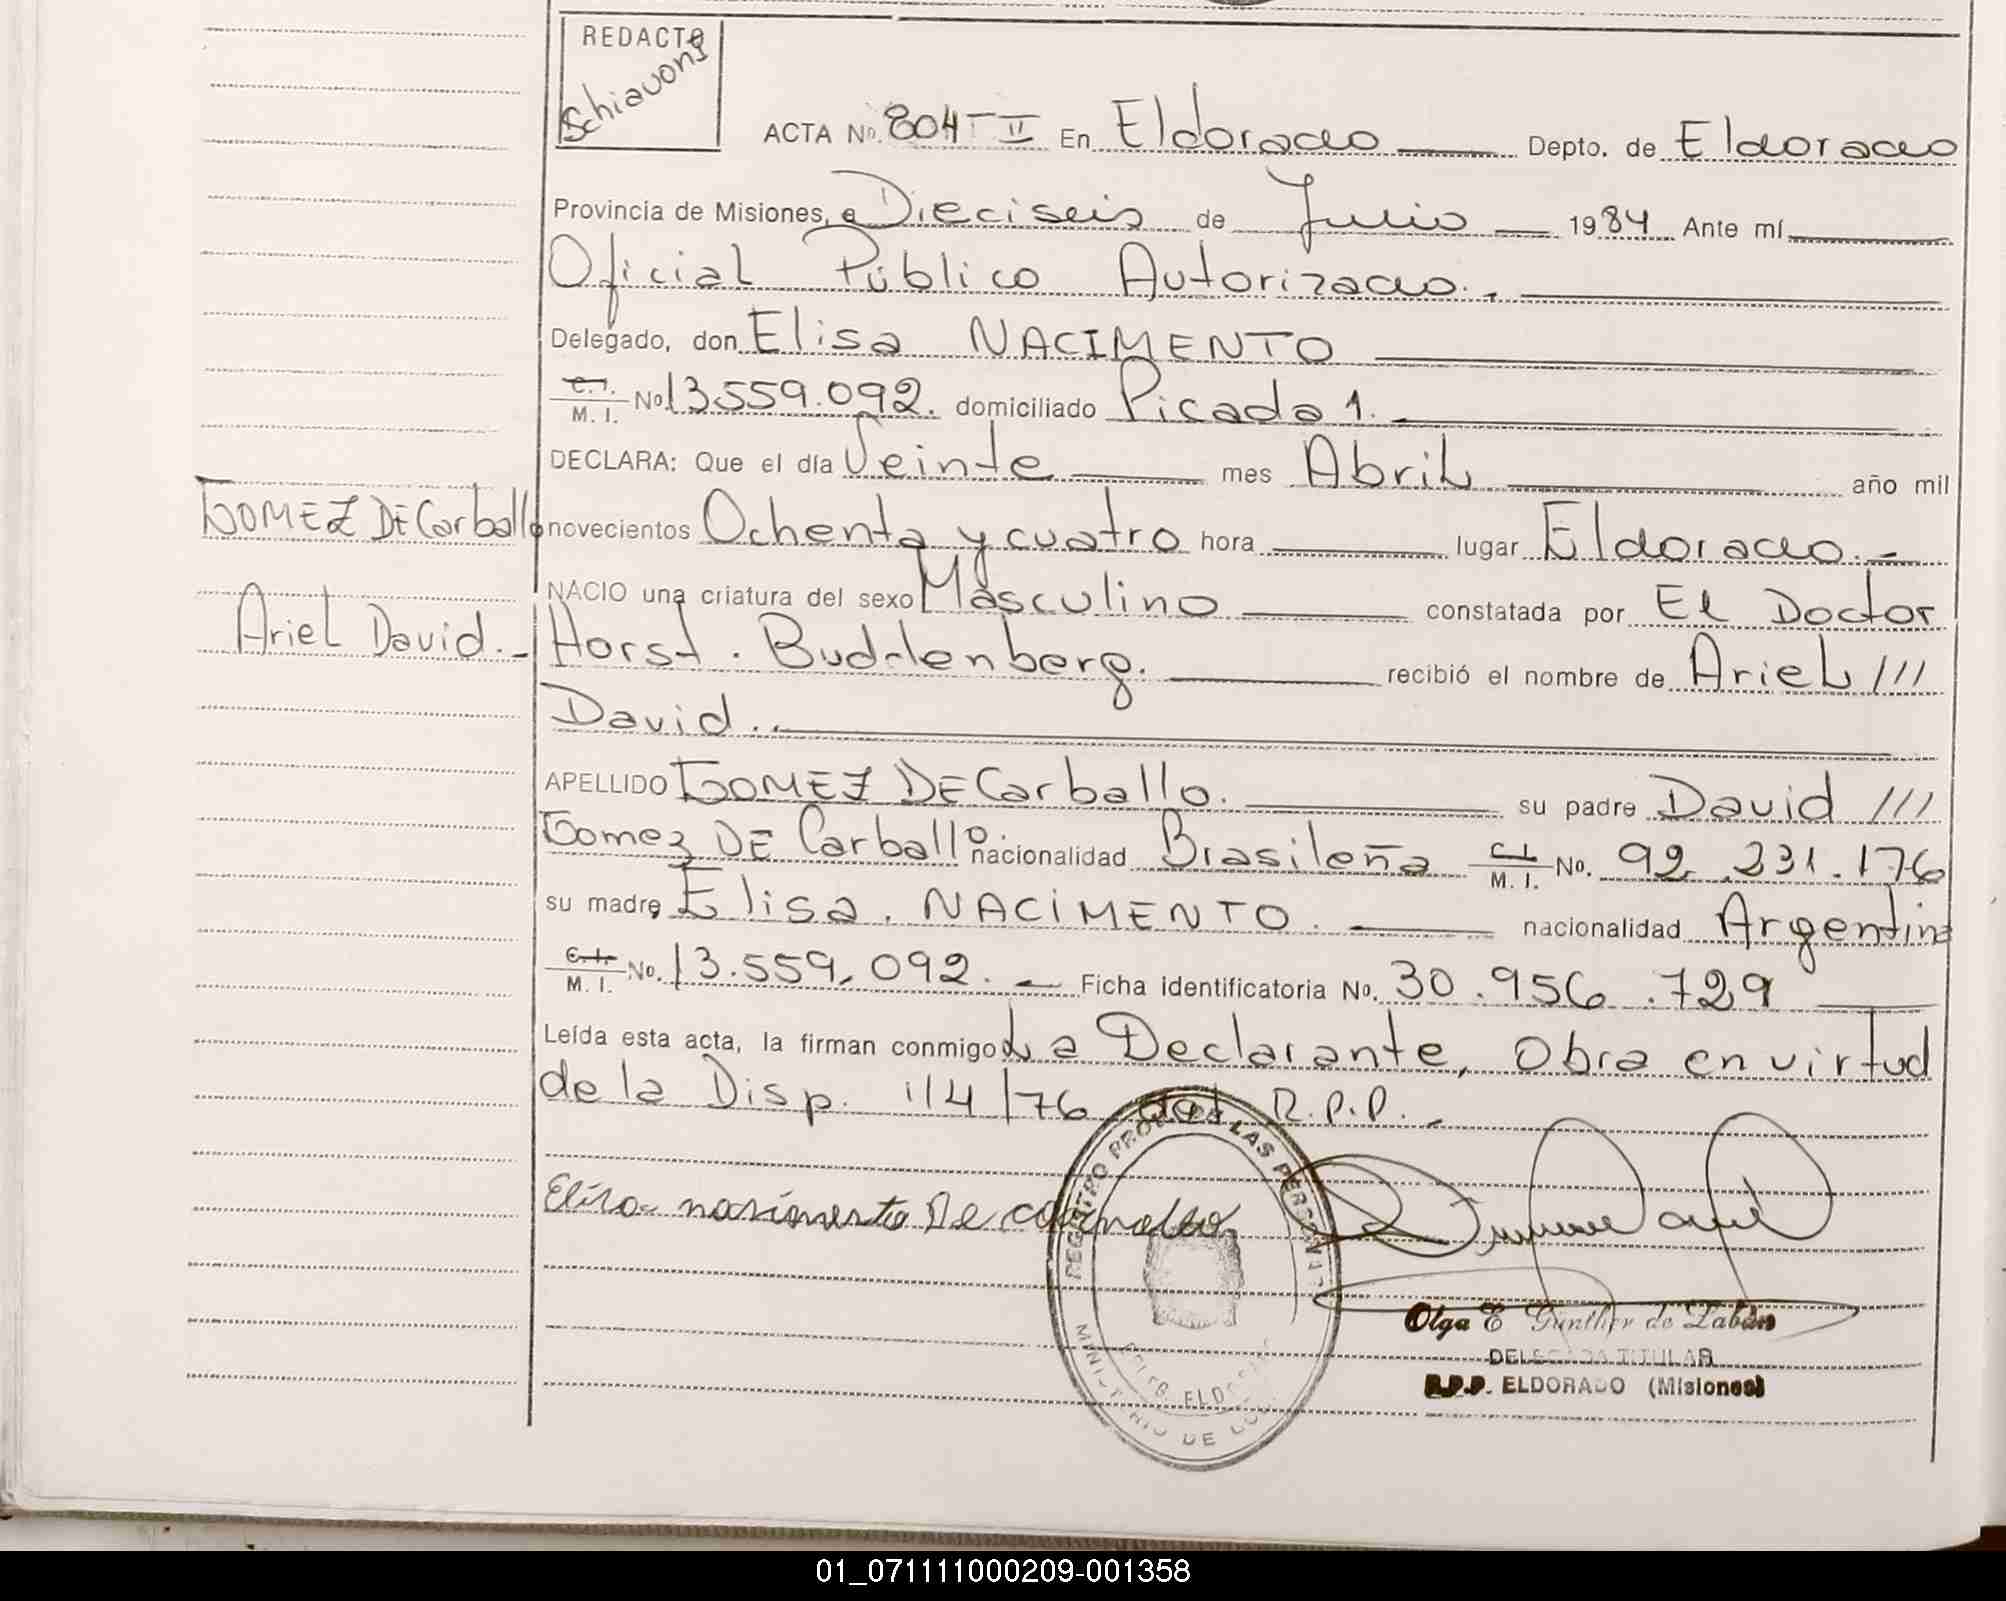 REDACTO
Schiavoni
ACTA Nº. 804-II En Eldorado Depto. de Eldorado
Provincia de Misiones, a Dieciseis de Julio 1984 Ante mí
Oficial Público Autorizado.
Delegado, don Elisa NACIMENTO
C.I. M. I. Nº 13.559.092. domiciliado Picada 1.
DECLARA: Que el día Veinte mes Abril año mil
GOMEZ DE Carballo novecientos Ochenta y cuatro hora lugar Eldorado.-
NACIO una criatura del sexo Masculino constatada por El Doctor
Ariel David.- Horst. Buddenberg. recibió el nombre de Ariel ///
David.
APELLIDO GOMEZ DE Carballo. su padre David ///
Gomez DE Carballo. nacionalidad Brasileña C.I. M. I. Nº. 92.331.176
su madre Elisa. NACIMENTO. nacionalidad Argentina
C.I. M. I. Nº. 13.559.092.- Ficha identificatoria Nº. 30.956.729
Leída esta acta, la firman conmigo La Declarante, Obra en virtud
de la Disp. 1/4/76 del R.P.P.-
Elisa nasimento De
REGISTRO PROV. DE LAS PERSONAS
MINISTERIO DE
DELEG. ELDORADO
Olga E Günther de Labán
DELEGADA TITULAR
R.P.P. ELDORADO (Misiones)
01_071111000209-001358